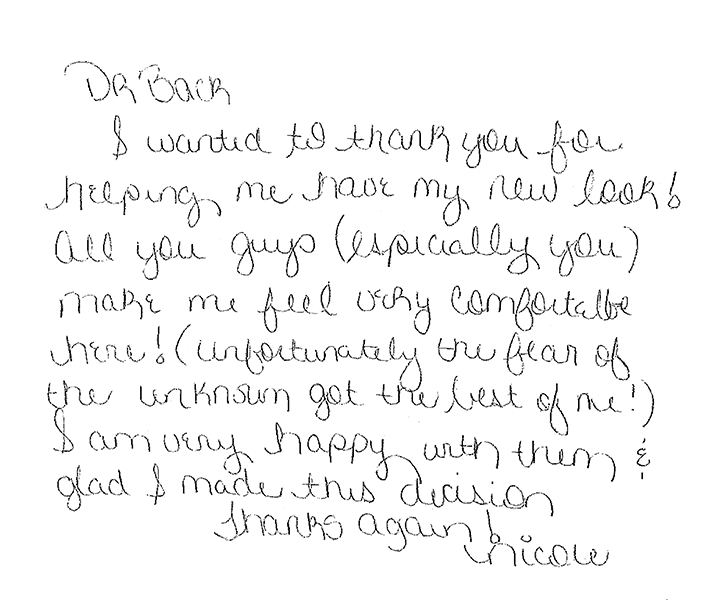 Dr Back
I wanted to thank you for
helping me have my new look!
All you guys (especially you)
make me feel very comfortalbe
here! (unfortunately the fear of
the unknown got the best of me!)
I am very happy with them &
glad I made this decision
Thanks again!
Nicole